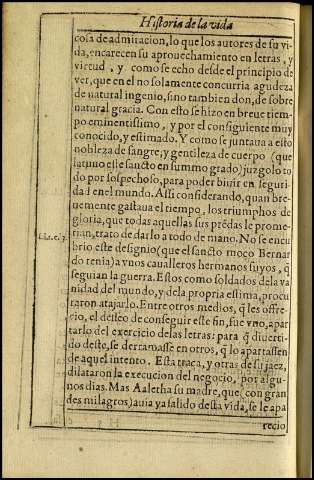 Historia de la vida
cosa de admiracion, lo que los autores de su vi-
da, encarecen su aprouechamiento en letras, y
virtud, y como se echo desde el principio de
ver, que en el no solamente concurria agudeza
de natural ingenio, sino tambien don, de sobre
natural gracia. Con esto se hizo en breue tiem-
po eminentissimo, y por el consiguiente muy
conocido, y estimado. Y como se juntaua a esto
nobleza de sangre, y gentileza de cuerpo (que
la tuuo este sancto en summo grado) juzgolo to
do por sospechoso, para poder biuir en seguri-
dad en el mundo. Assi considerando, quan bre-
uemente gastaua el tiempo, los triumphos de
gloria, que todas aquellas sus prēdas le prome-
tian, trato de darlo a todo de mano. No se encu
Lib. 1. c. 3.
brio este designio (que el sancto moço Bernar
do tenia) a vnos caualleros hermanos suyos, q̄
seguian la guerra. Estos como soldados de la va
nidad del mundo, y de la propria estima, procu
raron atajarlo. Entre otros medios, q̄ les offre-
cio, el desseo de conseguir este fin, fue vno, apar
tarlo del exercicio de las letras: para q̄ diuerti-
do deste, se derramasse en otros, q̄ lo apartassen
de aquel intento. Esta traça, y otras de su jaez,
dilataron la execucion del negocio, por algu-
nos dias. Mas Aaletha su madre, que (con gran
des milagros) auia ya salido desta vida, se le apa
recio